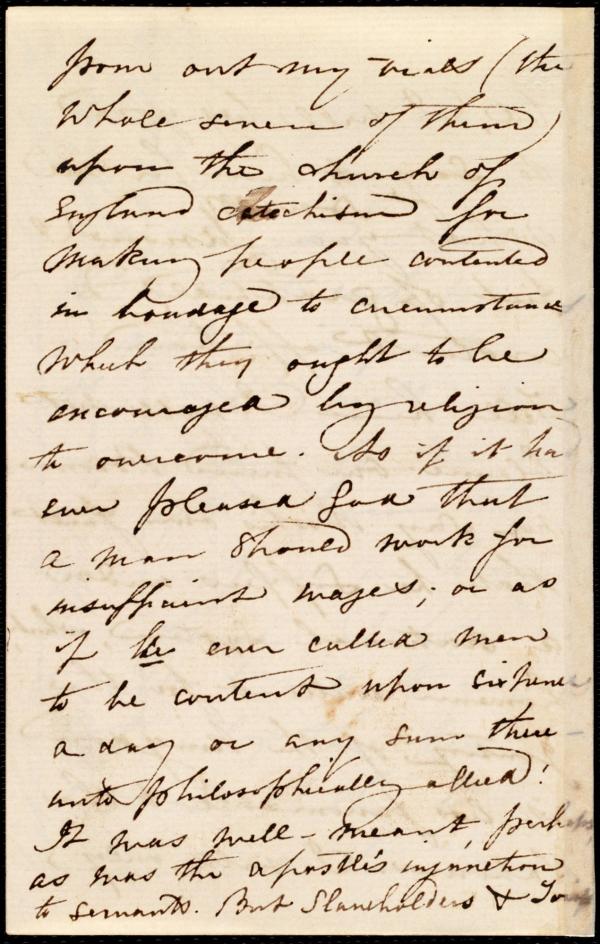 from out my vials (the
whole seven of them)
upon the Church of
England Catechism for
making people contented
in bondage to circumstance
which they ought to be
encouraged by religion
to overcome. As if it ha
ever pleased God that
a man should work for
insufficient wages; or as
if he ever called men
to be content upon sixpence
a day or any sum there
unto philosophically allied!
It was well-meant, perhaps,
as was the apostle's injunction
to servants. But Slaveholders &